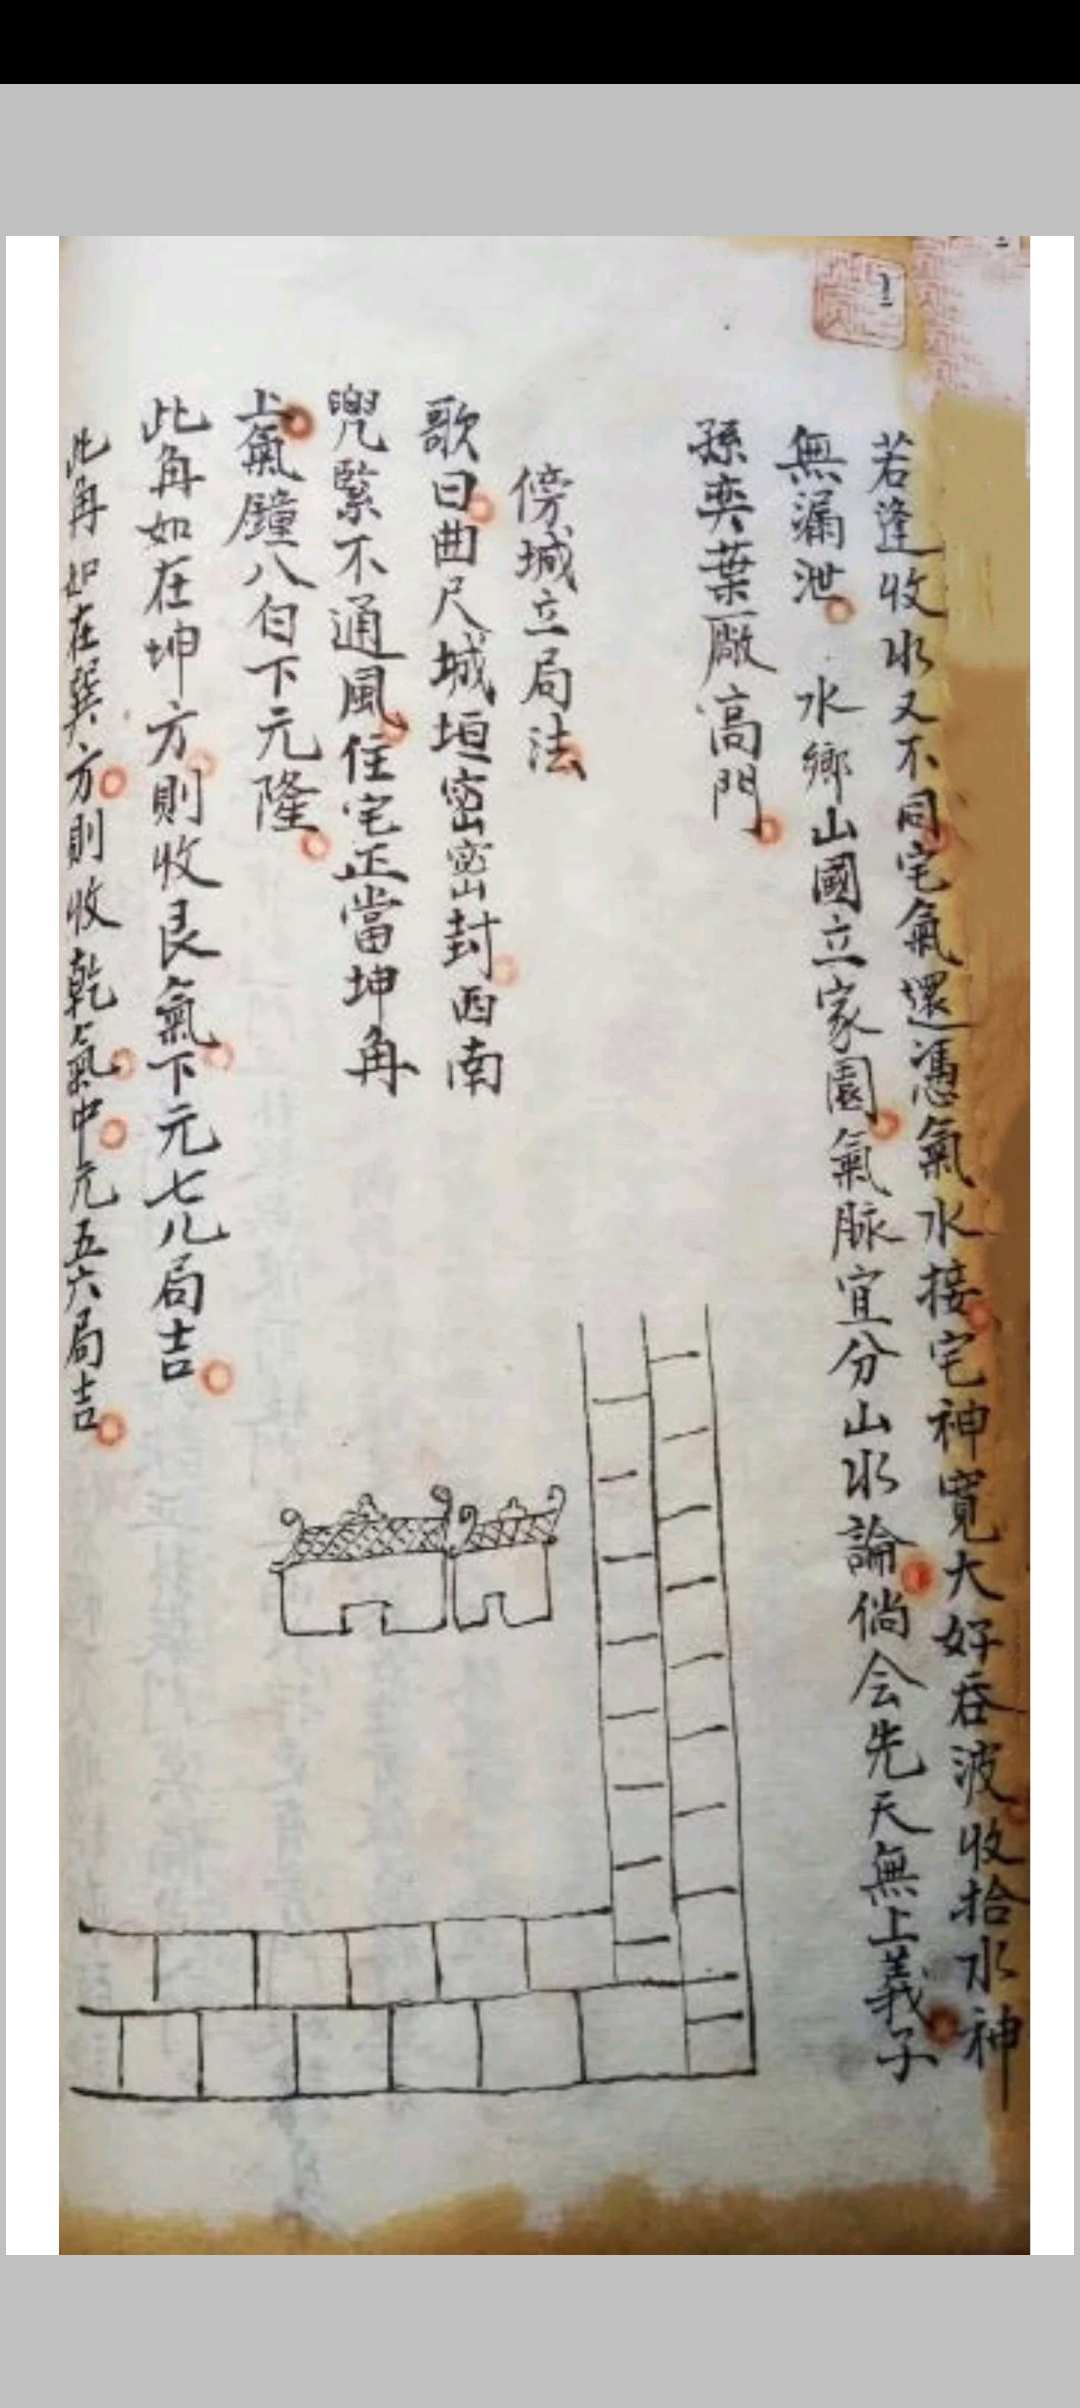 若逢收水又不同宅氣還憑氣水接宅神寬大好吞波收拾水神
無漏泄 水鄉山國立家園氣脉宜分山水論倘会先天無上義子
孫奕葉厰高門
傍城立局法
歌曰曲尺城垣密密封西南
兜緊不通風住宅正當坤角
上氣鐘八白下元隆
此角如在坤方則收艮氣下元七八局吉
此角如在巽方則收乾氣中元五六局吉